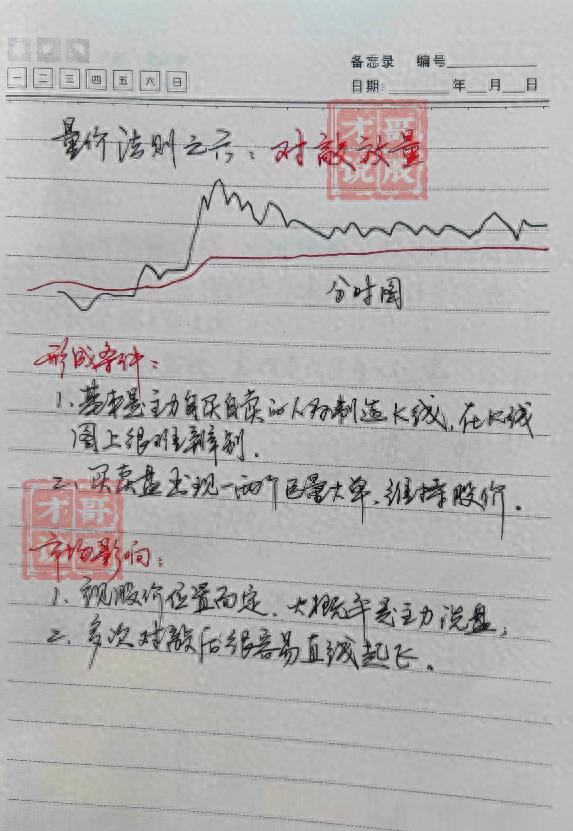 备忘录 编号
一 二 三 四 五 六 日
日期: 年 月 日
量价法则之六:对敲放量
才哥说成
分时图
形成条件:
1、基本是主力自买自卖的人为制造K线,在K线
图上很难辨别.
二、买卖盘出现一两个巨量大单、维持股价.
才哥说成
市场影响:
1、视股价位置而定、大概率是主力洗盘;
二、多次对敲后很容易直线起飞.